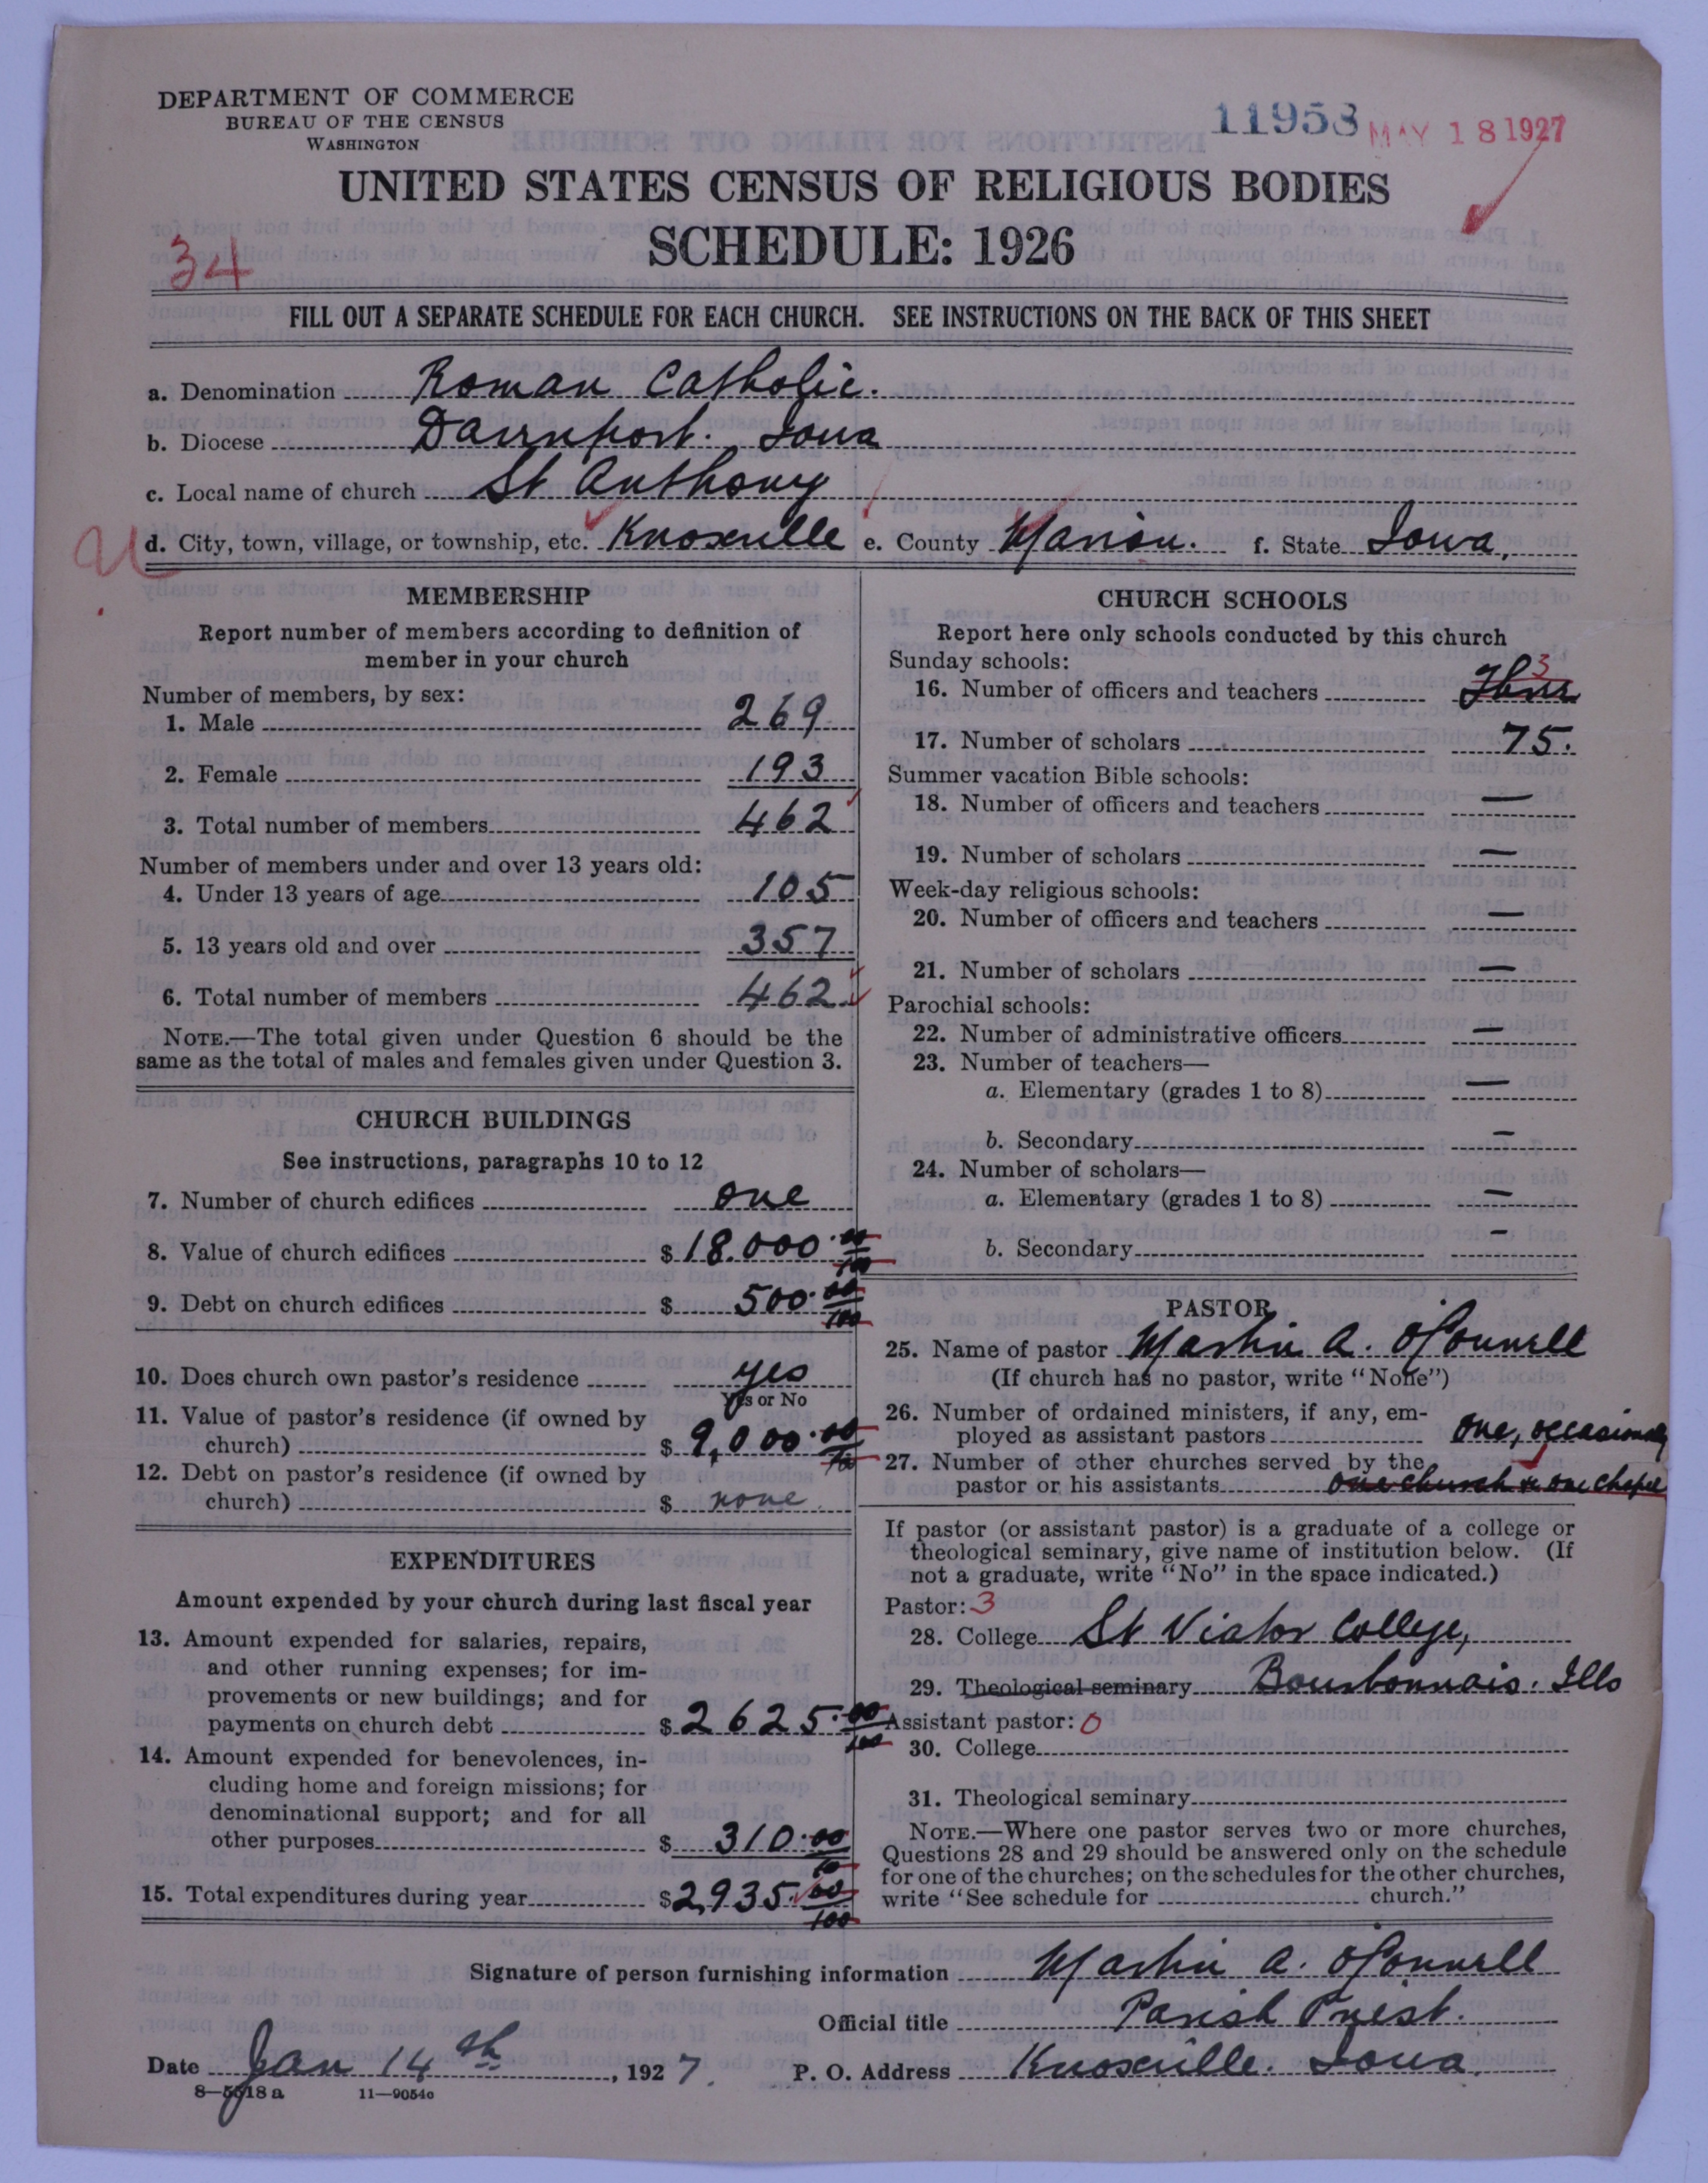 DEPARTMENT OF COMMERCE
BUREAU OF THE CENSUS
WASHINGTON
11958 MAY 18 1927
UNITED STATES CENSUS OF RELIGIOUS BODIES
SCHEDULE: 1926
34
FILL OUT A SEPARATE SCHEDULE FOR EACH CHURCH. SEE INSTRUCTIONS ON THE BACK OF THIS SHEET
a. Denomination Roman Catholic.
b. Diocese Davenport. Iowa
c. Local name of church St Anthony
d. City, town, village, or township, etc. Knoxville e. County Marion. f. State Iowa.
MEMBERSHIP
Report number of members according to definition of
member in your church
Number of members, by sex:
1. Male 269
2. Female 193
3. Total number of members 462
Number of members under and over 13 years old:
4. Under 13 years of age 105
5. 13 years old and over 357
6. Total number of members 462
NOTE.—The total given under Question 6 should be the
same as the total of males and females given under Question 3.
CHURCH BUILDINGS
See instructions, paragraphs 10 to 12
7. Number of church edifices one
8. Value of church edifices $18.000.00/100
9. Debt on church edifices $500.00/100
10. Does church own pastor's residence yes
Yes or No
11. Value of pastor's residence (if owned by
church) $9,000.00/100
12. Debt on pastor's residence (if owned by
church) $ none
EXPENDITURES
Amount expended by your church during last fiscal year
13. Amount expended for salaries, repairs,
and other running expenses; for im-
provements or new buildings; and for
payments on church debt $2625.00/100
14. Amount expended for benevolences, in-
cluding home and foreign missions; for
denominational support; and for all
other purposes $310.00
15. Total expenditures during year $2,935.00/100
CHURCH SCHOOLS
Report here only schools conducted by this church
Sunday schools:
3
16. Number of officers and teachers Three
17. Number of scholars 75.
Summer vacation Bible schools:
18. Number of officers and teachers —
19. Number of scholars —
Week-day religious schools:
20. Number of officers and teachers —
21. Number of scholars —
Parochial schools:
22. Number of administrative officers —
23. Number of teachers—
a. Elementary (grades 1 to 8) —
b. Secondary —
24. Number of scholars—
a. Elementary (grades 1 to 8) —
b. Secondary —
PASTOR
25. Name of pastor Martin A. O'Connell
(If church has no pastor, write "None")
26. Number of ordained ministers, if any, em-
ployed as assistant pastors one, occasionally
27. Number of other churches served by the
pastor or his assistants one church & one chapel
If pastor (or assistant pastor) is a graduate of a college or
theological seminary, give name of institution below. (If
not a graduate, write "No" in the space indicated.)
Pastor: 3
28. College St Viator College,
29. Theological seminary Bourbonnais. Ills
Assistant pastor: 0
30. College
31. Theological seminary
NOTE.—Where one pastor serves two or more churches,
Questions 28 and 29 should be answered only on the schedule
for one of the churches; on the schedules for the other churches,
write "See schedule for church."
Signature of person furnishing information Martin A. O'Connell
Official title Parish Priest.
Date Jan 14th, 1927. P. O. Address Knoxville. Iowa.
8—5518 a 11—9054o